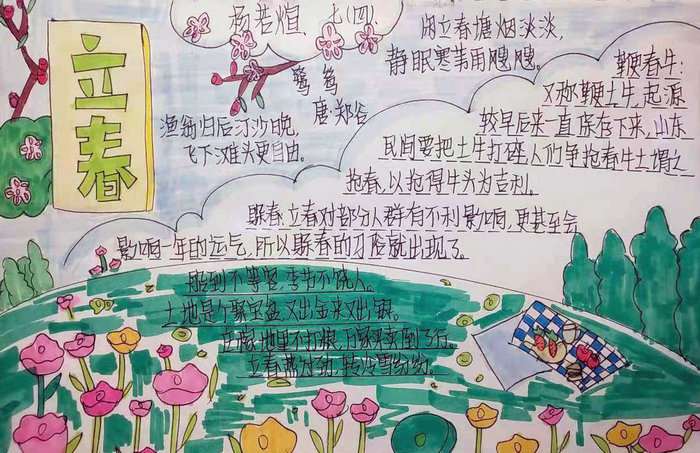 立春
杨若煊 七(四)
鹭鸶
唐·郑谷
闲立春塘烟淡淡,
静眠寒苇雨飕飕。
渔翁归后汀沙晚,
飞下滩头更自由。
鞭春牛:
又称鞭土牛,起源
较早后来一直保存下来,山东
民间要把土牛打碎,人们争抢春牛土谓之
抢春,以抢得牛头为吉利。
躲春立春对部分人群有不利影响,更甚至会
影响一年的运气,所以躲春的习俗就出现了。
船到不等客,季节不饶人。
土地是个聚宝盆,又出金来又出银。
地里不打粮,
立春 转冷雪纷纷。